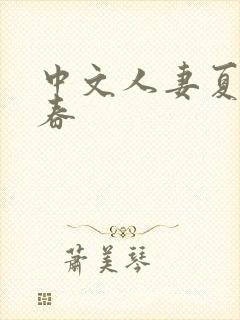 中文人妻夏
春
萧美琴